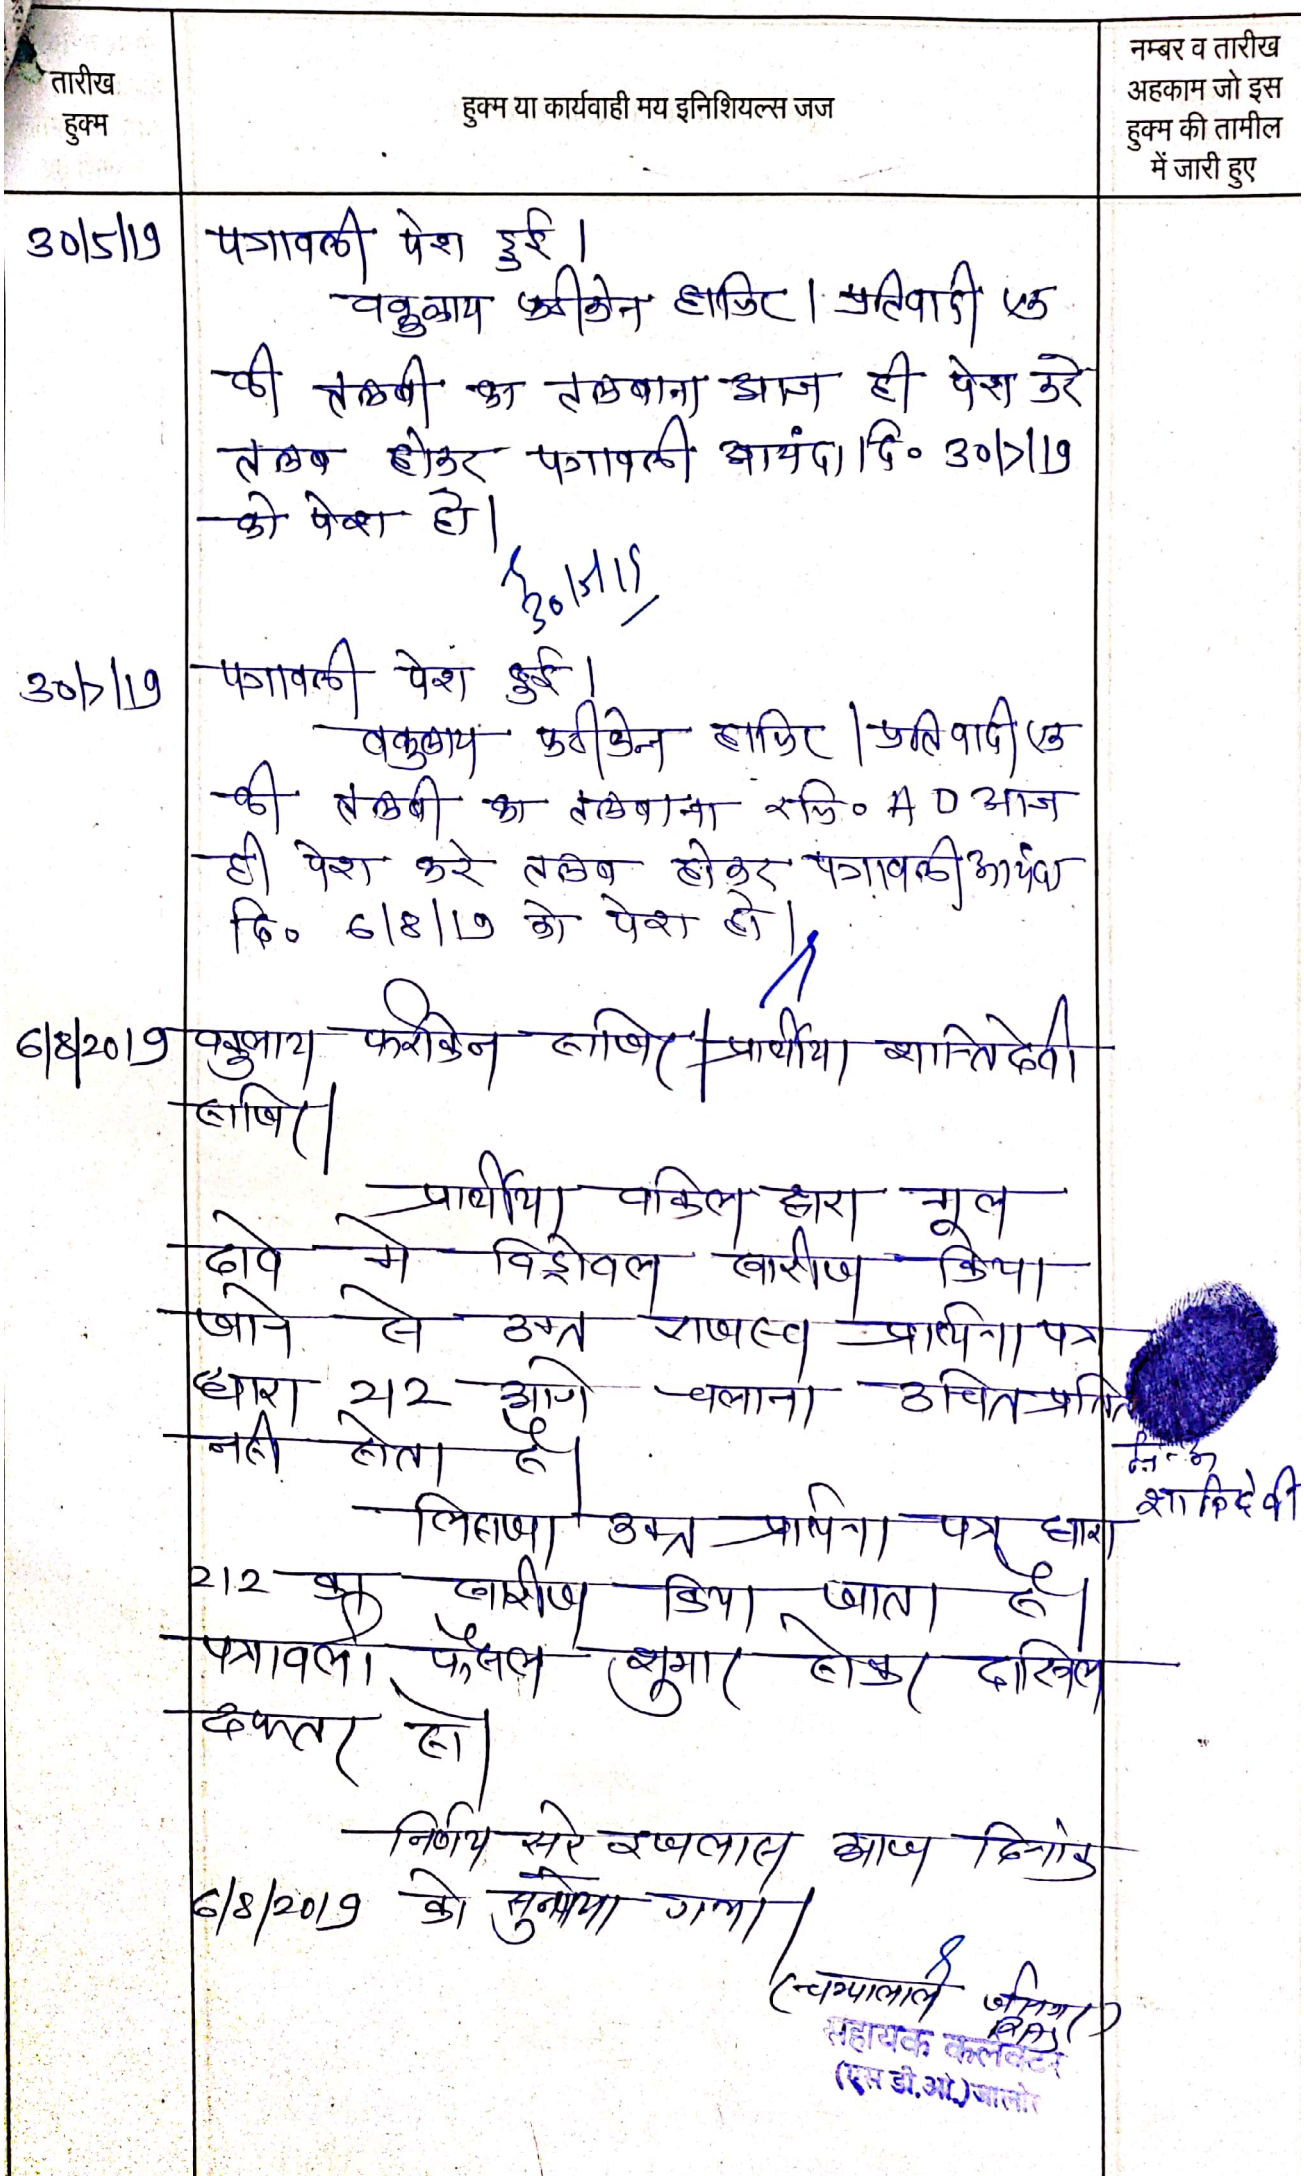 तारीख
हुक्म
हुक्म या कार्यवाही मय इनिशियल्स जज
नम्बर व तारीख
अहकाम जो इस
हुक्म की तामील
में जारी हुए
30/5/19 पत्रावली पेश हुई।
वकुलाय फरीकेन हाजिर। प्रतिवादी एक
की तलबी का तलबाना आज ही पेश करे
तलब होकर पत्रावली आयंदा दि० 30/7/19
को पेश हो।
30/5/19
30/7/19 पत्रावली पेश हुई।
वकुलाय फरीकेन हाजिर। प्रतिवादी एक
की तलबी का तलबाना रजि० A D आज
ही पेश करे तलब होकर पत्रावली आयंदा
दि० 6/8/19 को पेश हो।
6/8/2019 वकुलाय फरीकेन हाजिर। प्रार्थीया शान्तिदेवी
हाजिर।
प्रार्थीया वकिल द्वारा मूल
दावे मे विड्रोवल खारीज किया
जाने से उक्त राजस्व प्रार्थना पत्र
धारा 212 आगे चलाना उचित प्रतित
नही होता है।
नि-अ
शान्तिदेवी
लिहाजा उक्त प्रार्थना पत्र धारा
212 का खारीज किया जाता है।
पत्रावली फैसल शुमार होकर दाखिल
दफ्तर हो।
निर्णय सरे इजलास आज दिनांक
6/8/2019 को सुनाया गया।
(चम्पालाल जीनगर)
RAS
सहायक कलक्टर
(एस.डी.ओ.) जालोर